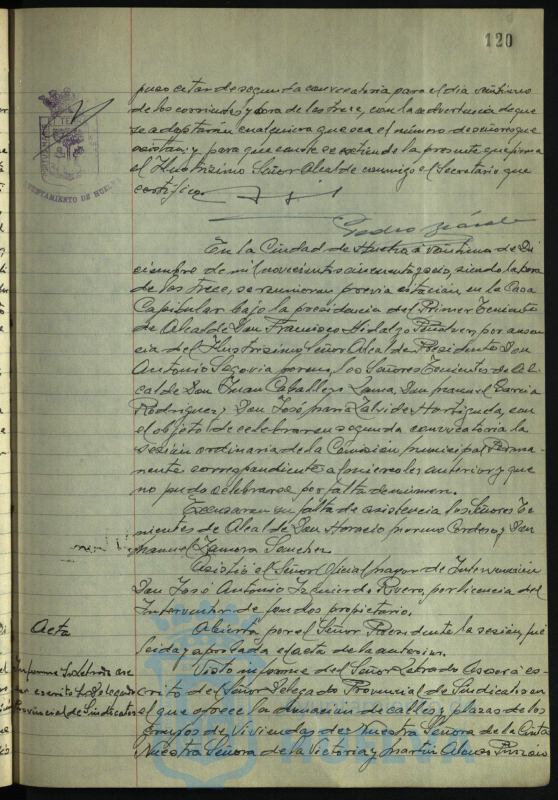 120
puso citar de segunda convocatoria para el día veintiuno
de los corrientes y hora de las trece, con la advertencia de que
se adoptarán cualquiera que sea el número de señores que
asistan; y para que conste se extiende la presente que firma
el Ilustrísimo Señor Alcalde conmigo el Secretario que
certifico.
Pedro
AYUNTAMIENTO DE HUELVA
En la Ciudad de Huelva á veintiuno de Di
ciembre de mil novecientos cincuenta y seis, siendo la hora
de las trece, se reunieron previa citación en la Casa
Capitular bajo la presidencia del Primer Teniente
de Alcalde Don Francisco Hidalgo Peñalver, por ausen
cia del Ilustrísimo Señor Alcalde Presidente Don
Antonio Segovia los Señores Tenientes de Al
calde Don Juan Caballero Don Manuel García
Rodríguez y Don José Parra con
el objeto de celebrar en segunda convocatoria la
sesión ordinaria de la Comisión Municipal Perma-
nente correspondiente al miércoles anterior y que
no pudo celebrarse por falta de número.
Excusaron su falta de asistencia los Señores Te
nientes de Alcalde Don Horacio Moreno Cordero y Don
Manuel Zamora Sánchez.
Asistió el Señor Oficial Mayor de Intervención
Don José Antonio Izquierdo Rivero, por licencia del
Interventor de fondos propietario.
Acta
Abierta por el Señor Presidente la sesión, fué
leída y aprobada el acta de la anterior.
Informe Sr. Letrado
escrito Sr. Delegado
Provincial de Sindicatos
Visto informe del Señor Letrado Asesor á es-
crito del Señor Delegado Provincial de Sindicatos en
el que ofrece la donación de calles y plazas de los
Grupos de Viviendas de Nuestra Señora de la Cinta
Nuestra Señora de la Victoria y Martín Alonso Pinzón